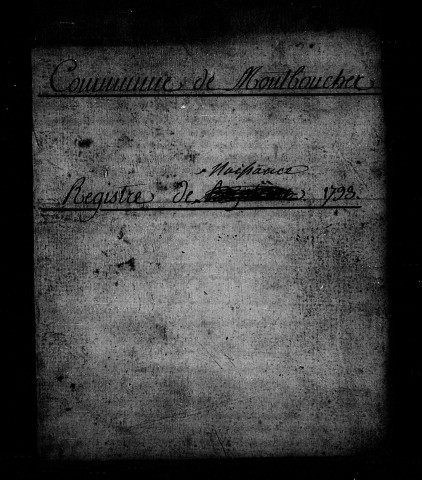 Commune de Montboucher
Naissance
Registre de 1793.